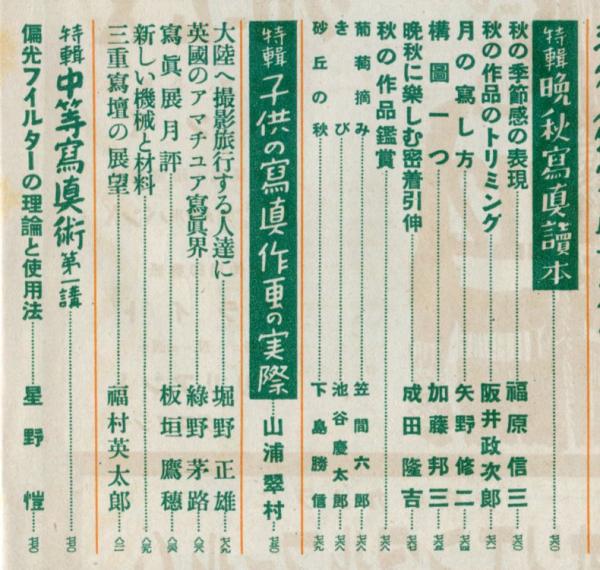 特輯 晩秋寫真讀本
秋の季節感の表現 福原信三
秋の作品のトリミング 阪井政次郎
月の寫し方 矢野修二
構圖一つ 加藤邦三
晩秋に樂しむ密着引伸 成田隆吉
秋の作品鑑賞
葡萄摘み 笠間六郎
きび 池谷慶太郎
砂丘の秋 下島勝信
特輯 子供の寫真作画の実際 山浦翠村
大陸へ撮影旅行する人達に 堀野正雄
英國のアマチュア寫眞界 綠野茅路
寫眞展月評 板垣鷹穗
新しい機械と材料
三重寫壇の展望 福村英太郎
特輯 中等寫真術 第一講
偏光フイルターの理論と使用法 星野愷